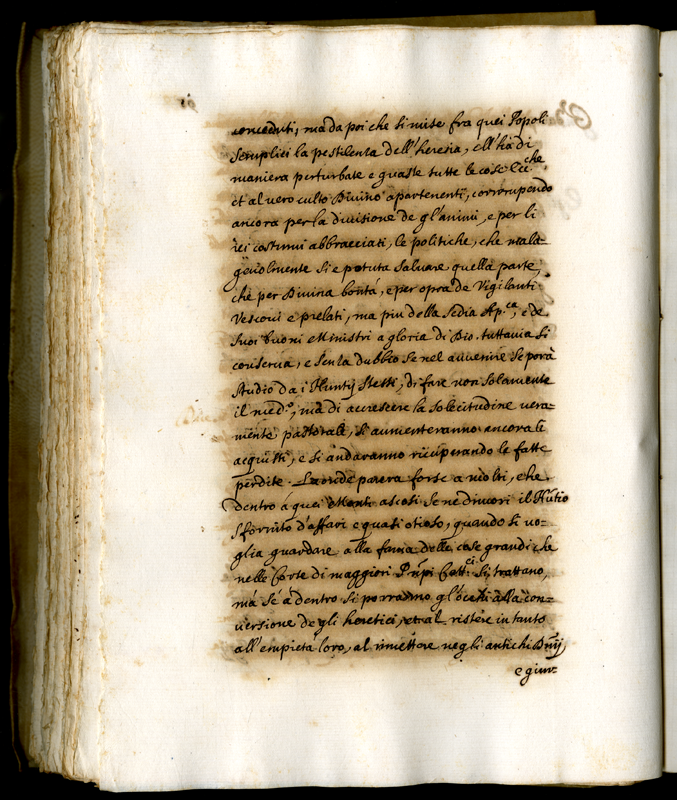 conceduti; ma da poi che si mise fra quei Popoli
semplici la pestilenza dell'heresia, ell'ha di
maniera perturbate e guaste tutte le cose Ecc.che
et al vero culto Divino apartenenti, corrompendo
ancora per la divisione de gl'animi, e per li
rei costumi abbracciati, le politiche, che mala=
gevolmente si è potuta salvare quella parte,
che per Divina bontà, e per opra de Vigilanti
Vescovi e prelati, ma piu della Sedia Ap.ca, e de
suoi buoni Ministri a gloria di Dio tuttavia si
conserva, e senza dubbio se nel avvenire se porà
studio da i Nuntij stessi, di fare non solamente
il med.o, ma di accrescere la solecitudine vera=
mente pastorale, si aumenteranno ancora li
acquisti, e si andaranno ricuperando le fatte
perdite. Laonde parera forse a molti, che
dentro à quei Monti ascosi se ne dimori il Nuntio
sfornito d'affari e quasi otioso, quando si vo=
glia guardare alla fama delle cose grandi che
nelle Corte di maggiori Prnpi Catt.ci si trattano,
mà se à dentro si porranno gl'occhi alla con=
versione degli heretici, et al restere in tanto
all'empietà loro, al rimettere negli antichi Dnij
e giur=